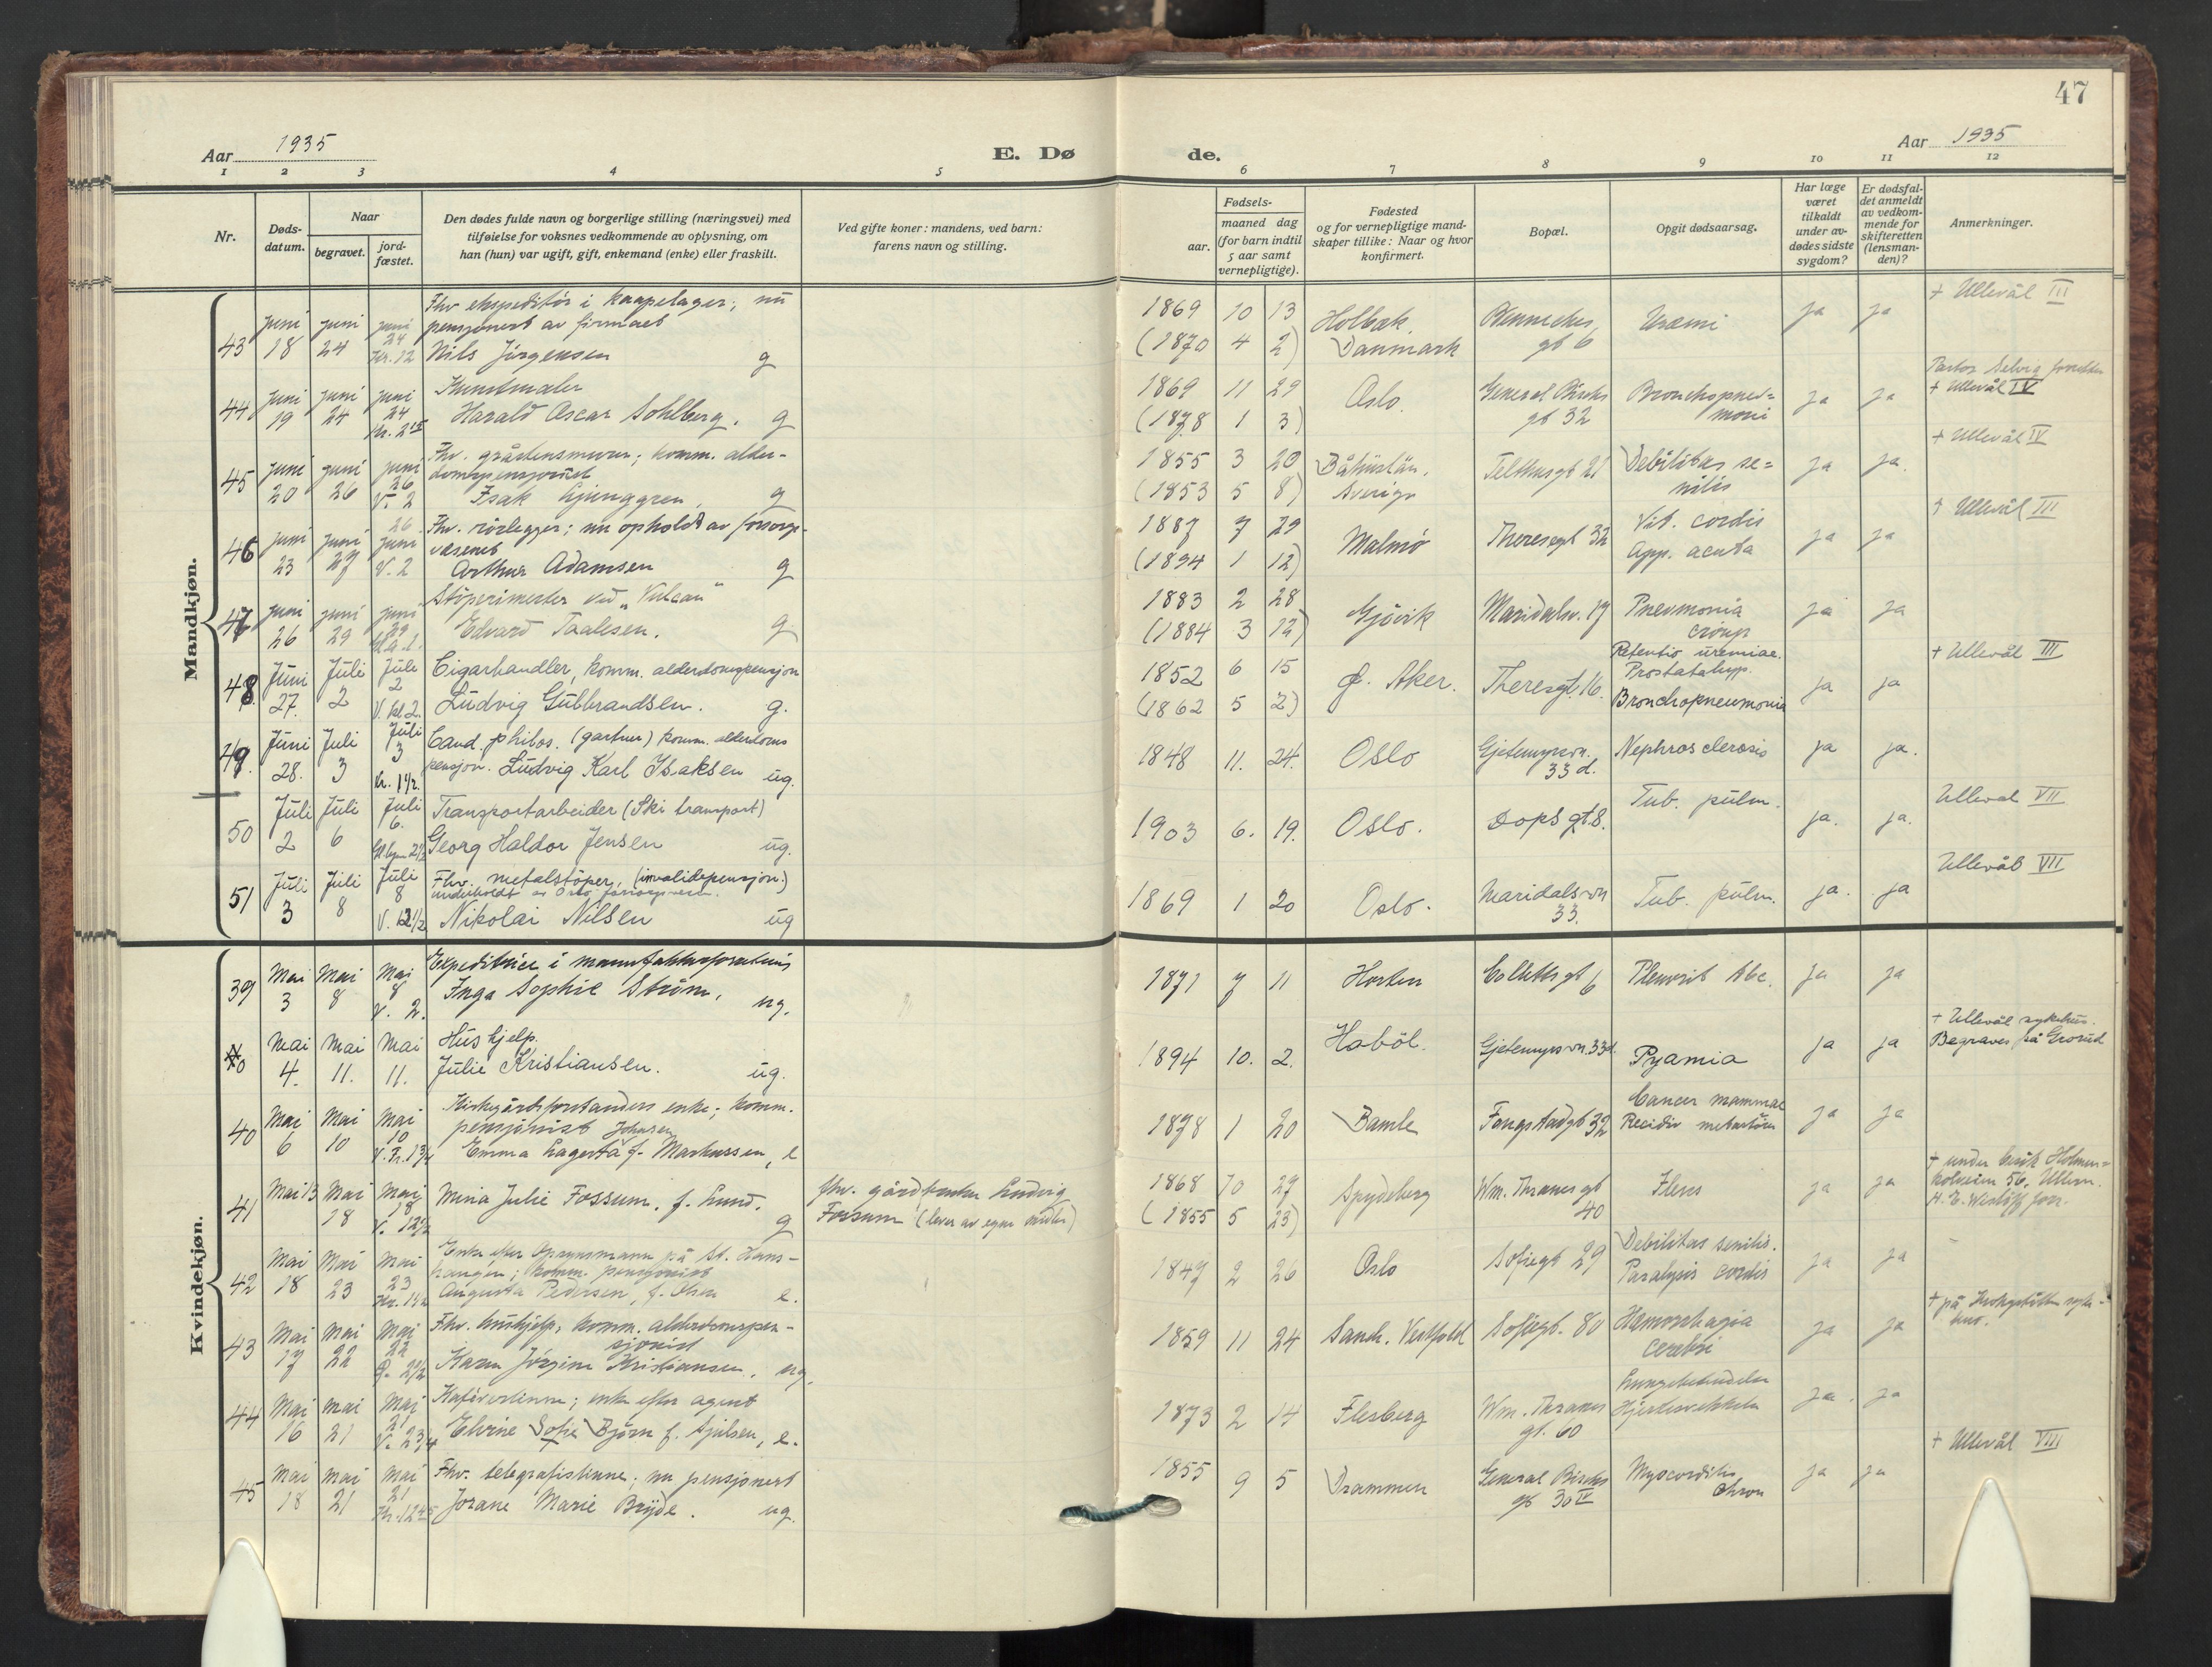 47
Aar 1935
E. Dø
de.
Aar 1935
1 2 3 4 5
6 7 8 9 10 11 12
Nr.
Døds-
datum.
Naar
begravet.
jord-
fæstet.
Den dødes fulde navn og borgerlige stilling (næringsvei) med
tilføielse for voksnes vedkommende av oplysning, om
han (hun) var ugift, gift, enkemand (enke) eller fraskilt.
Ved gifte koner: mandens, ved barn:
farens navn og stilling.
Fødsels-
aar.
maaned dag
(for barn indtil
5 aar samt
vernepligtige).
Fødested
og for vernepligtige mand-
skaper tillike: Naar og hvor
konfirmert.
Bopæl.
Opgit dødsaarsag.
Har læge
været
tilkaldt
under av-
dødes sidste
sygdom?
Er dødsfal-
det anmeldt
av vedkom-
mende for
skifteretten
(lensman-
den)?
Anmerkninger.
Mandkjøn.
43 Juni 18 Juni 24 Juni 24 Kr. 12
Fhv ekspeditør i kaapelager; nu
pensjonert av firmaet
Nils Jörgensen g
1869 10 13
(1870 4 2)
Holbæk.
Danmark
gt 6
Uræmi
ja ja
+ Ullevål III
44 Juni 19 Juni 24 Juni 24 Kr. 2 15
Kunstmaler
Harald Oscar Sohlberg. g
1869 11 29
(1878 1 3)
Oslo.
General Birchs
gt 32
Bronchopneu=
moni
ja ja
Pastor Selvig forrettet
+ Ullevål IV
45 Juni 20 Juni 26 Juni 26 V. 2
Fhv. gråstensmurer; komm. alder-
domspensjonist
Isak Ljunggren, g
1855 3 20
(1853 5 8)
Båhuslän.
Sverige
Telthusgt 21
Debilitas se=
nilis
ja ja.
+ Ullevål IV
46 Juni 23 Juni 27 26 Juni V. 2
Fhv. rörlegger; nu opholdt av forsorgs-
væsenet
Arthur Adamsen g
1887 7 29
(1894 1 12)
Malmö
Theresegt 32
Vit. cordis
App. acuta
ja ja
+ Ullevål III
47 Juni 26 Juni 29 Juni 29
Støperimester ved "Vulcan"
Edvard Paulsen. g
1883 2 28
(1884 3 12)
Gjövik
Maridalsv. 17
Pneumonia
croup
ja ja
48 Juni 27. Juli 2 Juli 2 V. kl 2.
Cigarhandler, komm. alderdomspensjon
Ludvig Gulbrandsen. g.
1852 6 15
(1862 5 2)
Ø. Aker.
Theresgt. 16.
Retentio uremiae.
Prostatahyp.
Bronchopneumonia
ja ja
+ Ullevål III
49. Juni 28. Juli 3 Juli 3 Kr. 1 1/2
Cand. philos. (gartner) komm. alderdoms
pensjon. Ludvig Karl Isaksen ug.
1848 11. 24.
Oslo
Gjetemyrsvn.
33 d.
Nephrosclerosis
ja ja.
50 Juli 2 Juli 6 Juli 6.
Transportarbeider (Ski transport)
Georg Haldor Jensen ug.
1903 6. 19.
Oslo.
Dops gt. 8.
Tub. pulm.
ja. ja.
Ullevål VII
51 Juli 3 Juli 8 Juli 8 V. 12 1/2
Fhv. metalstöper, (invalidepensjon.)
underholdt av Oslo forsorgsvesen.
Nikolai Nilsen ug
1869 1 20
Oslo.
Maridalsvn
33.
Tub. pulm.
ja. ja
Ullevål VII
Kvindekjøn.
39 Mai 3 Mai 8 Mai 8 V. 2.
Expeditrice i manufakturforretning
Inga Sophie Ström, ug.
1871 7 11
Horten
Collettsgt 6
Pleurit tbc.
ja ja
40 Mai 4. Mai 11. Mai 11.
Hushjelp.
Julie Kristiansen. ug.
1894 10. 2.
Haböl.
Gjetemyrsvn. 33d.
Pyamia
ja ja
+ Ullevål sykehus.
Begraves på Grorud
40 Mai 6 Mai 10 Mai 10 V. Kr. 1 3/4
Kirkegårdsforstanders enke; komm.
pensjonist Johnsen
Emma Lagerta f. Markussen, e
1878 1 20
Bamle
Fougstadgt 32
Cancer mammae
Recidiv metastöser
ja ja
41 Mai 13 Mai 18 Mai 18 V. 12 1/2
Mina Julie Fossum, f. Lund. g
fhv. gårdbruker Ludvig
Fossum (lever av egne midler)
1868 10 27
(1855 5 23)
Spydeberg
Wm. Thranes gt
40
Ileus
ja ja
+ under besøk Holmen=
kolveien 56, Ullern.
42 Mai 18 Mai 23 Mai 23 Kr. 1 1/2
Enke efter Opsynsmann på St. Hans-
haugen; komm. pensjonist
Augusta Pedersen, f. Olsen e.
1847 2 26
Oslo
Sofiegt 29
Debilitas senilis.
Paralysis cordis
ja ja
43 Mai 17 Mai 22 Mai 22 2 1/2
Fhv. hushjelp, komm. alderdomspen-
sjonist
Karen Jörgine Kristiansen, ug.
1859 11 24
Sande. Vestfold
Sofiegt. 80
Hæmorrhagia
cerebri
ja ja
+ på syke-
hus.
44 Mai 16 Mai 21 Mai 21 V. 2 3/4
Kafévertinne; enke efter agent
Elvine Sofie Björn f. Sjulsen, e.
1873 2 14
Flesberg
Wm. Thranes
gt. 60
Lungebetendelse
Hjertesvekkelse
ja. ja
45 Mai 18 Mai 21 Mai 21 Kr. 12 45
Fhv. telegrafistinne; nu pensjonert
Jorane Marie Bryde. ug.
1855 9 5
Drammen
General Birchs
gt 30 IV
Myocarditis
chron
ja ja
+ Ullevål VIII